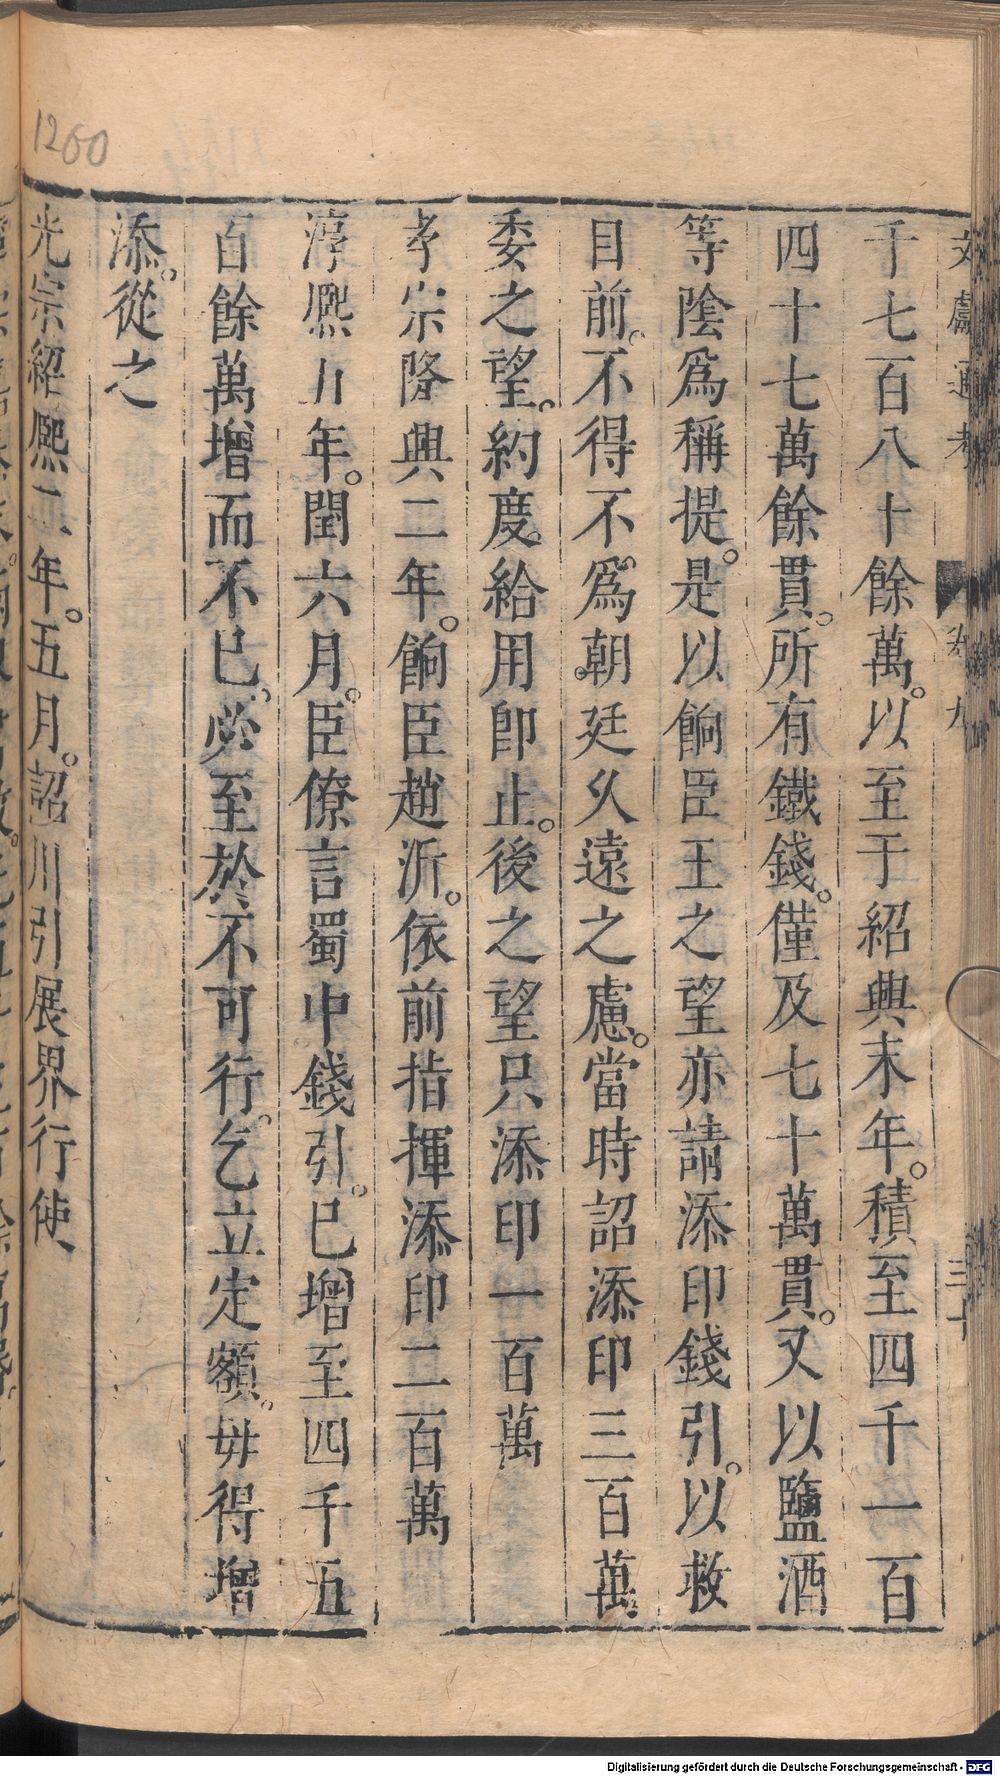 文獻通考 卷九 三十
千七百八十餘萬。以至于紹興末年。積至四千一百
四十七萬餘貫。所有鐵錢。僅及七十萬貫。又以鹽酒
等陰爲稱提。是以餉臣王之望亦請添印錢引。以救
目前。不得不爲朝廷久遠之慮。當時詔添印三百萬。
委之望。約度給用卽止。後之望只添印一百萬
孝宗隆興二年。餉臣趙沂。依前指揮添印二百萬
淳熈五年。閏六月。臣僚言蜀中錢引。已增至四千五
百餘萬增而不已。必至於不可行。乞立定額。毋得增
添。從之
光宗紹熈二年。五月。詔川引展界行使
1260
Digitalisierung gefördert durch die Deutsche Forschungsgemeinschaft - DFG